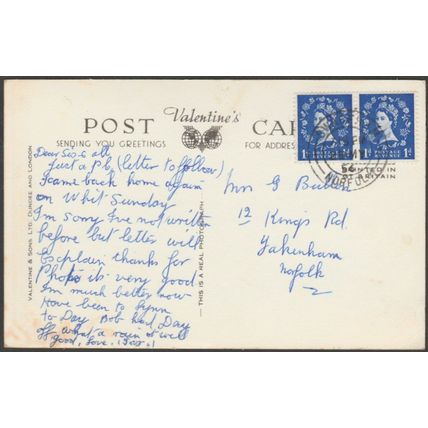 POST CARD
Valentine's
SENDING YOU GREETINGS
FOR ADDRESS
Dear Sis & all
Just a p.c (letter to follow)
I came back home again
on Whit Sunday
I'm sorry I've not written
before but letter will
Explain thanks for
Photo it's very good
I'm much better now
Have been to Lynn
to Day Bob had Day
off what a rain it will
good, Love,
Mrs G
12 King's Rd.
Fakenham
Norfolk
PRINTED IN
BRITAIN
NORFOLK
POSTAGE
1D
1D
VALENTINE & SONS LTD. DUNDEE AND LONDON
THIS IS A REAL PHOTOGRAPH